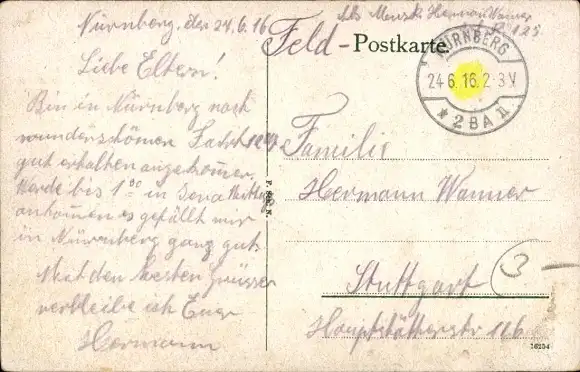 Nürnberg, den 24.6.16
Hermann Wanner
Feld-Postkarte
NÜRNBERG
24 6.16. 2-3 V
* 2 B A II
Liebe Eltern!
Bin in Nürnberg nach
wunderschönen
gut erhalten angekommen,
Werde bis 1°° in Jena
ankommen es gefällt mir
in Nürnberg ganz gut.
Mit den besten Grüssen
verbleibe ich Euer
Hermann
Familie
Hermann Wanner
Stuttgart
3
Hauptstätterstr 116
16254